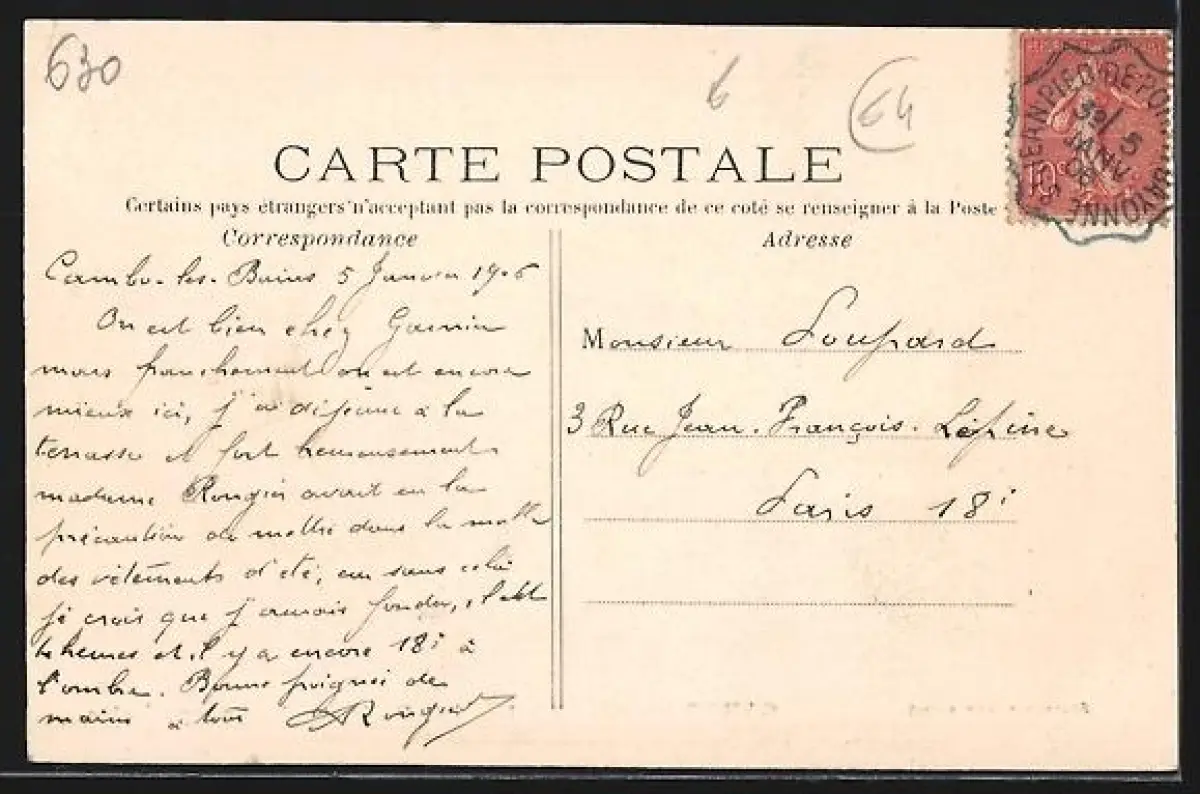 630
6
64
CARTE POSTALE
Certains pays étrangers n'acceptant pas la correspondance de ce coté se renseigner à la Poste
Correspondance
Cambo-les-Bains 5 Janvier 1906
On est bien chez Garnier
mais franchement on est encore
mieux ici, j'ai déjeuné à la
terrasse et fort heureusement
madame Rougier avait eu la
précaution de mettre dans la malle
des vêtements d'été, car sans cela
je crois que j'aurais fondu, il est
4 heures et il y a encore 18° à
l'ombre. Bonne poignée de
mains à tous Rougier
Adresse
Monsieur Loupard
3 Rue Jean-François-Lépine
Paris 18e
10c
ST JEAN PIED-DE-PORT BAYONNE
5
JANV
06